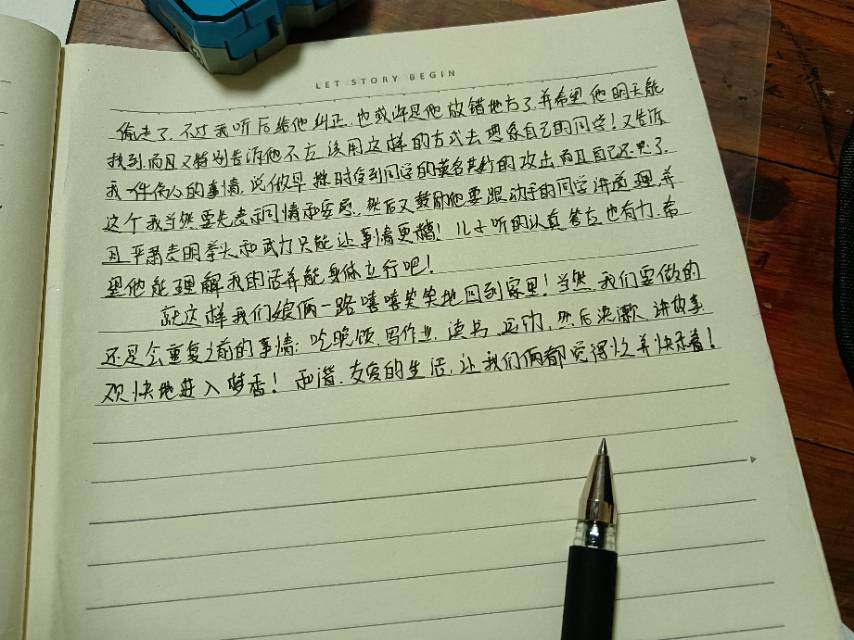 LET STORY BEGIN
偷走了,不过我听后给他纠正,也或许是他放错地方了,并希望他明天能
找到,而且又特别告诉他不应该用这样的方式去想象自己的同学!又告诉
我一件伤心的事情,说做早操时受到同学的莫名其妙的攻击,而且自己还哭了,
这个我当然要先表示同情和安慰,然后又鼓励他要跟动手的同学讲道理,并
且严肃表明拳头和武力只能让事情更糟!儿子听的认真,答应也有力,希
望他能理解我的话并能身体立行吧!
就这样我们娘俩一路嘻嘻笑笑地回到家里!当然,我们要做的
还是会重复之前的事情:吃晚饭,写作业,读书,运动,然后洗漱,讲故事
欢快地进入梦香!和谐,友爱的生活,让我们俩都觉得忙并快乐着!